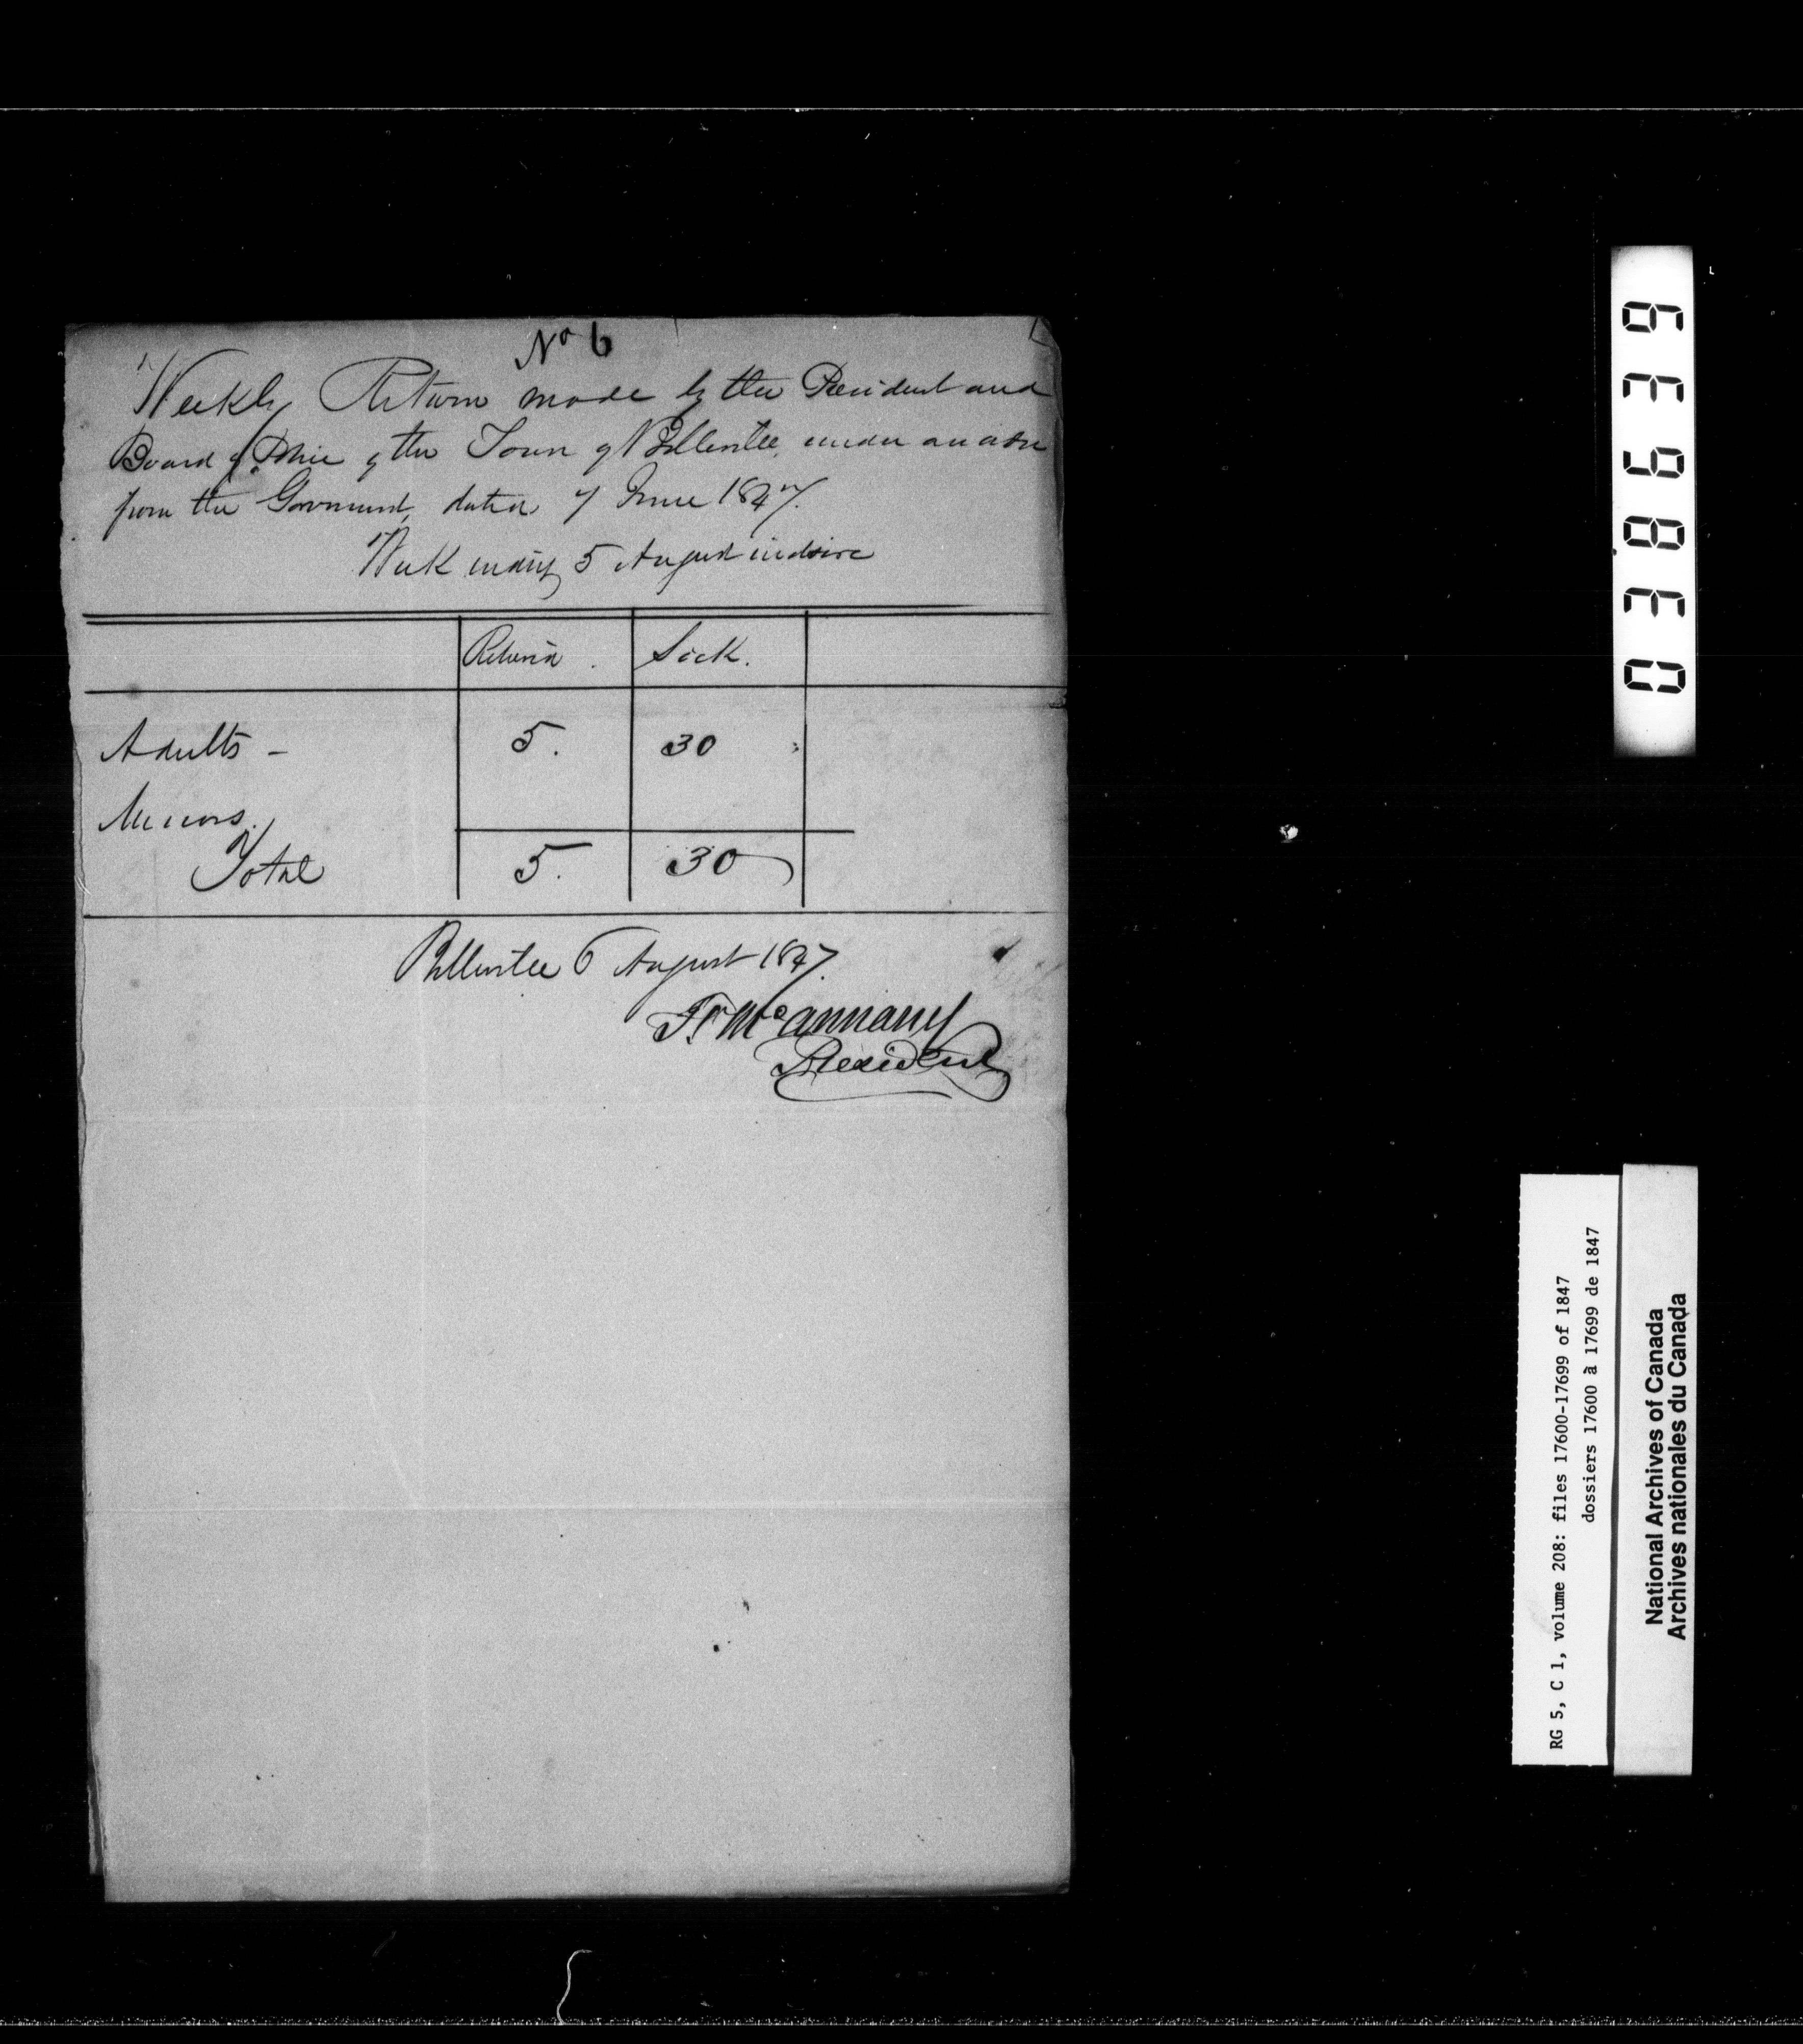 No 6
Weekly Return made by the President and
Board of Police of the Town of Belleville, under an order
from the Government, dated 7 June 1847.
Week ending 5 August inclusive
Reliev'd. Sick.
Adults - 5. 30
Minors.
Total 5. 30
Belleville 6 August 1847.
Fr. McAnnany
President
038639
RG 5, C 1, volume 208: files 17600-17699 of 1847
dossiers 17600 à 17699 de 1847
National Archives of Canada
Archives nationales du Canada